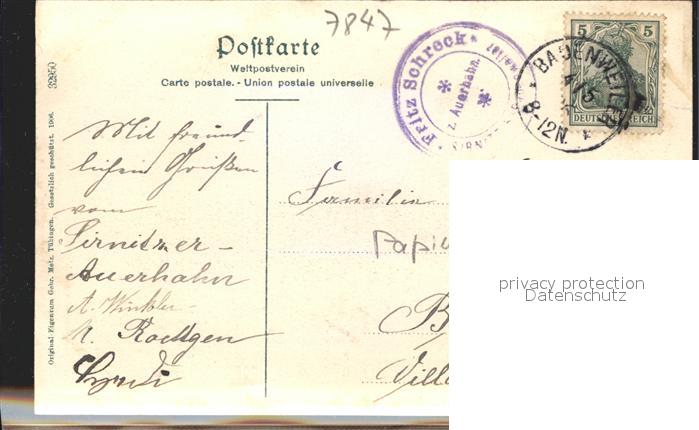 7847
Postkarte
Weltpostverein
Carte postale. - Union postale universelle
32950
Original-Eigentum Gebr. Metz, Tübingen. Gesetzlich geschützt. 1906.
Fritz Schreck
z. Auerhahn.
SIRNI
BADENWEILER
4/5
8-12N.
5 5
DEUTSCHES REICH
Mit freund-
lichen Grüßen
vom
Sirnitzer-
Auerhahn
A. Winkler
Familie
Papi
B
Villa
privacy protection
Datenschutz